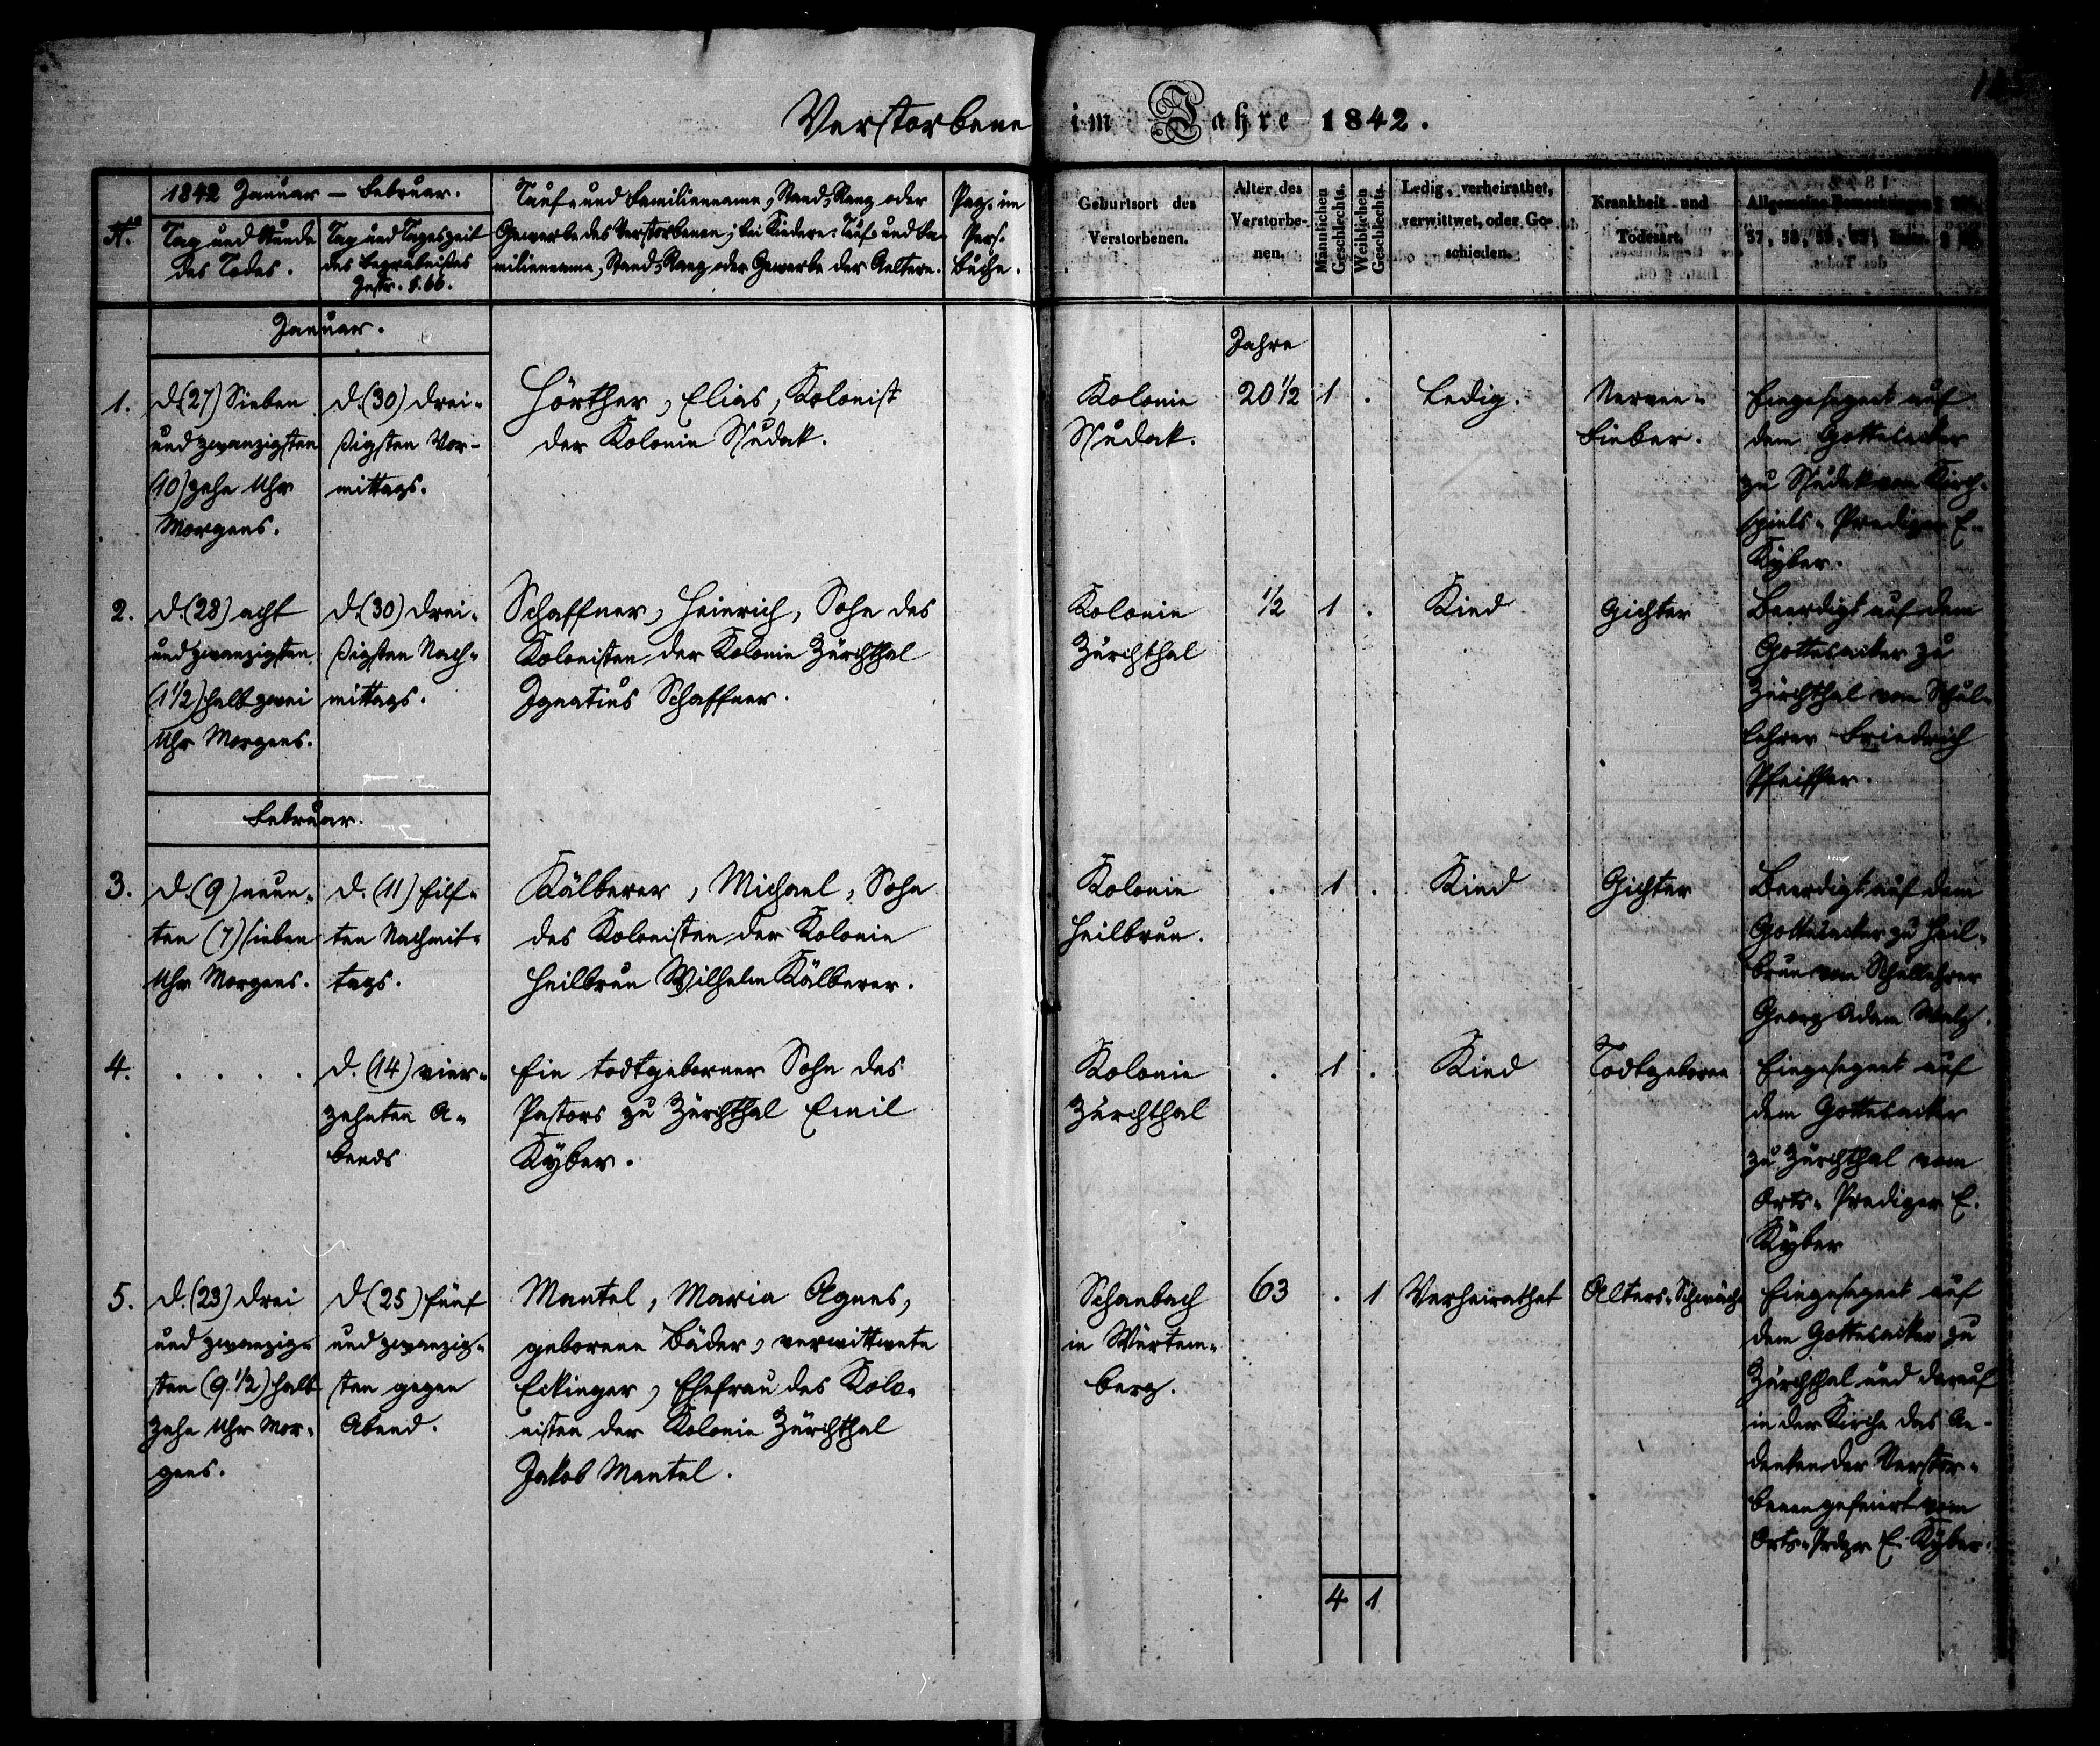 Verstorbene im Jahre 1842.
1842 Januar – Februar.
No.
Tag und Stunde
des Todes.
Tag und Tageszeit
des Begräbnißes
Instr. §. 66.
Tauf- und Familienname, Stand, Rang oder
Gewerbe des Verstorbenen; bei Kindern: Tauf- und Fa-
milienname, Stand, Rang oder Gewerbe der Aeltern.
Pag. im
Pers.
Buche.
Geburtsort des
Verstorbenen.
Alter des
Verstorbe-
nen.
Männlichen
Geschlechts.
Weiblichen
Geschlechts.
Ledig, verheirathet,
verwittwet, oder Ge-
schieden.
Krankheit und
Todesart.
Allgemeine Bemerkungen
Januar.
Jahre
1.
d. (27) Sieben
und zwanzigsten
(10) zehn Uhr
Morgens.
d. (30) drei-
ßigsten Vor-
mittags.
Hörther, Elias, Kolonist
der Kolonie Sudak.
Kolonie
Sudak.
20 1/2
1
.
Ledig.
Nerven-
Fieber.
Eingesegnet auf
dem Gottesacker
zu Sudak vom Kirch-
spiels-Prediger E.
Kyber.
2.
d. (28) acht
und zwanzigsten
(1 1/2) halb zwei
Uhr Morgens.
d. (30) drei-
ßigsten Nach-
mittags.
Schaffner, Heinrich, Sohn des
Kolonisten der Kolonie Zürchthal
Ignatius Schaffner.
Kolonie
Zürchthal
1/2
1
.
Kind
Gichter
Beerdigt auf dem
Gottesacker zu
Zürchthal vom Schul-
lehrer Friedrich
Pfeiffer.
Februar.
3.
d. (9) neun-
ten (7) sieben
Uhr Morgens.
d. (11) Eilf-
ten Nachmit-
tags.
Kälberer, Michael, Sohn
des Kolonisten der Kolonie
Heilbrun Wilhelm Kälberer.
Kolonie
Heilbrun.
.
1
.
Kind
Gichter
Beerdigt auf dem
Gottesacker zu Heil-
brun vom Schullehrer
Georg Adam Walz.
4.
. . . .
d. (14) vier-
zehnten A-
bends
Ein todtgeborner Sohn des
Pastors zu Zürchthal Emil
Kyber.
Kolonie
Zürchthal
.
1
.
Kind
Todtgeboren
Eingesegnet auf
dem Gottesacker
zu Zürchthal vom
Orts-Prediger E.
Kyber
5.
d. (23) drei
und zwanzig-
sten (9 1/2) halb
zehn Uhr Mor-
gens.
d. (25) fünf
und zwanzig-
sten gegen
Abend.
Mantel, Maria Agnes,
geborene Bäder, verwittwete
Eckinger, Ehefrau des Kolo-
nisten der Kolonie Zürchthal
Jakob Mantel.
Schanbach
in Würtem-
berg.
63
.
1
Verheirathet
Alters-Schwäche
Eingesegnet auf
dem Gottesacker zu
Zürchthal und darauf
in der Kirche das An-
denken der Verstor-
benen gefeiert vom
Orts-Predgr E. Kyber.
4
1